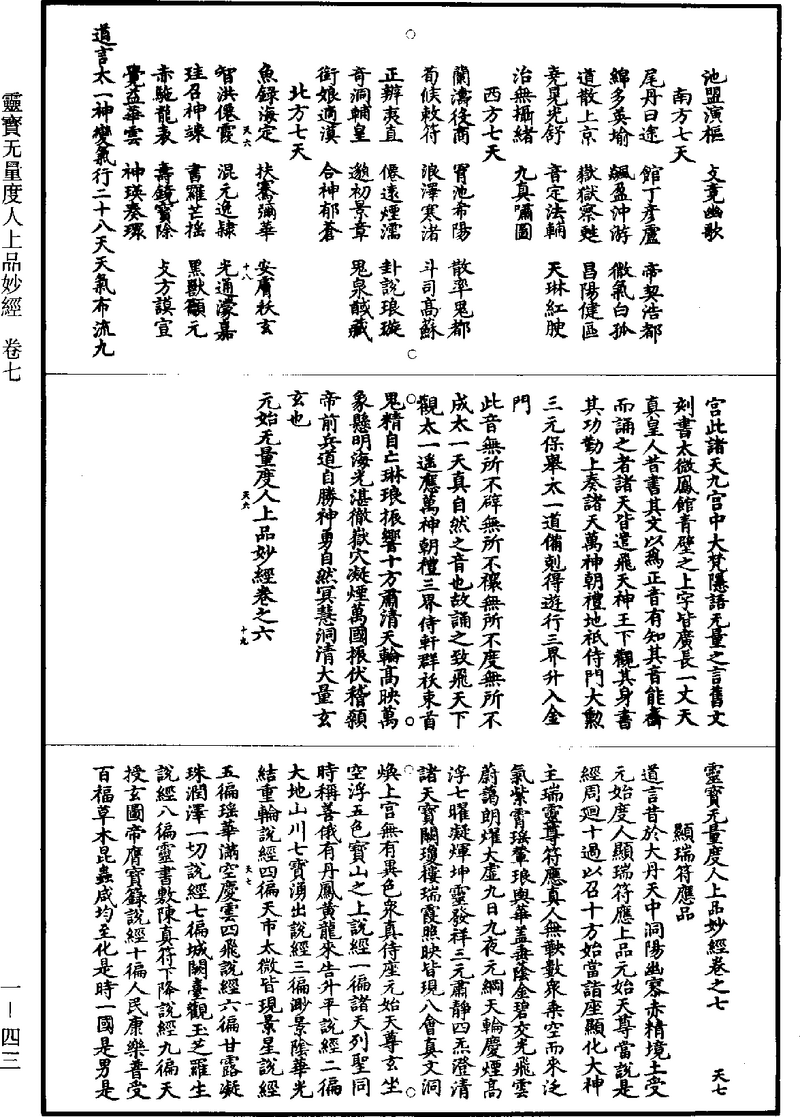 靈寶无量度人上品妙經　卷七
一—四三
池盟演樞　文竟幽歌
南方七天
尾丹日途　館丁彥盧　帝契浩都
綿多英墉　飆盈沖游　微氣白孤
道散上京　嶽獄察甦　昌陽健區
堯見光舒　音定法輔　天琳紅腴
治無攝緒　九真嘯圖
西方七天
蘭濤後商　胥池希陽　散率鬼都
荀候敕符　浪澤寒渚　斗司高蘇
正辦夷直　僊遠煙濡　卦說琅璇
奇洞輔皇　邀初景章　鬼泉馘藏
街娘適滇　合神郁蒼
北方七天
魚錄海定　扶騫瀰華　安膚秋玄
智洪僊霞　混元逸隸　光通濛嘉
珪召神諫　書羅芒搖　黑獸顧元
赤馳龍表　壽鏡寶除　攴方謨宣
覺益華雲　神瑛奏環
道言太一神變氣行二十八天天氣布流九
宮此諸天九宮中大梵隱語无量之言舊文
刻書太微鳳館青壁之上字皆廣長一丈天
真皇人昔書其文以為正音有知其音能齋
而誦之者諸天皆遣飛天神王下觀其身書
其功勤上奏諸天萬神朝禮地祇侍門大勳
三元保舉太一道備剋得遊行三界升入金
門
此音無所不辟無所不禳無所不度無所不
成太一天真自然之音也故誦之致飛天下
觀太一遥應萬神朝禮三界侍軒群妖束首
鬼精自亡琳琅振響十方肅清天輪高映萬
象懸明海光湛徹嶽穴凝煙萬國振伏稽顙
帝前兵道自勝神勇自然冥慧洞清大量玄
玄也
元始无量度人上品妙經卷之六
靈寶无量度人上品妙經卷之七　天七
顯瑞符應品
道言昔於大丹天中洞陽幽寥赤精境土受
元始度人顯瑞符應上品元始天尊當說是
經周廻十過以召十方始當詣座顯化大神
主瑞靈尊符應真人無鞅數眾乘空而來泛
氣紫霄瑶輦琅輿華蓋垂蔭金碧交光飛雲
蔚藹朗燿太虛九日九夜元綱天輪慶煙高
浮七曜凝煇坤靈發祥三元肅靜四炁澄清
諸天寶關瓊樓瑞霞照映皆現八會真文洞
煥上宮無有異色眾真侍座元始天尊玄坐
空浮五色寶山之上說經一徧諸天列聖同
時稱善俄有丹鳳黃龍來告升平說經二徧
大地山川七寶湧出說經三徧渺景陰華光
結重輪說經四徧天市太微皆現景星說經
五徧瑶華滿空慶雲四飛說經六徧甘露凝
珠潤澤一切說經七徧城闕臺觀玉芝羅生
說經八徧靈書敷陳真符下降說經九徧天
授玄圖帝膺寶籙說經十徧人民康樂普受
百福草木昆蟲咸均至化是時一國是男是